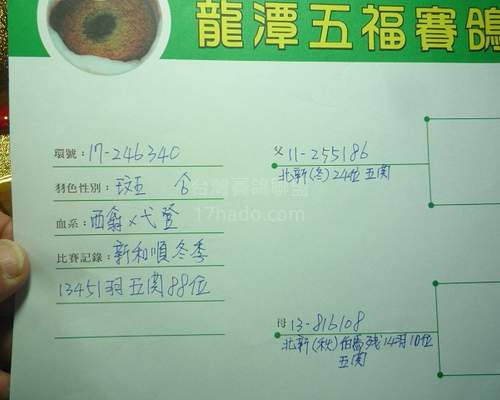 龍潭五福賽鴿
環號：17-246340
羽色性別：斑 合
血系：西翁×代登
比賽記錄：新和順冬季
13451羽五関88位
父 11-255186
北新(冬)24位五関
母 13-816108
北新(秋)伯馬殘14羽10位
五関
台灣賽鴿聯盟
17hado.com